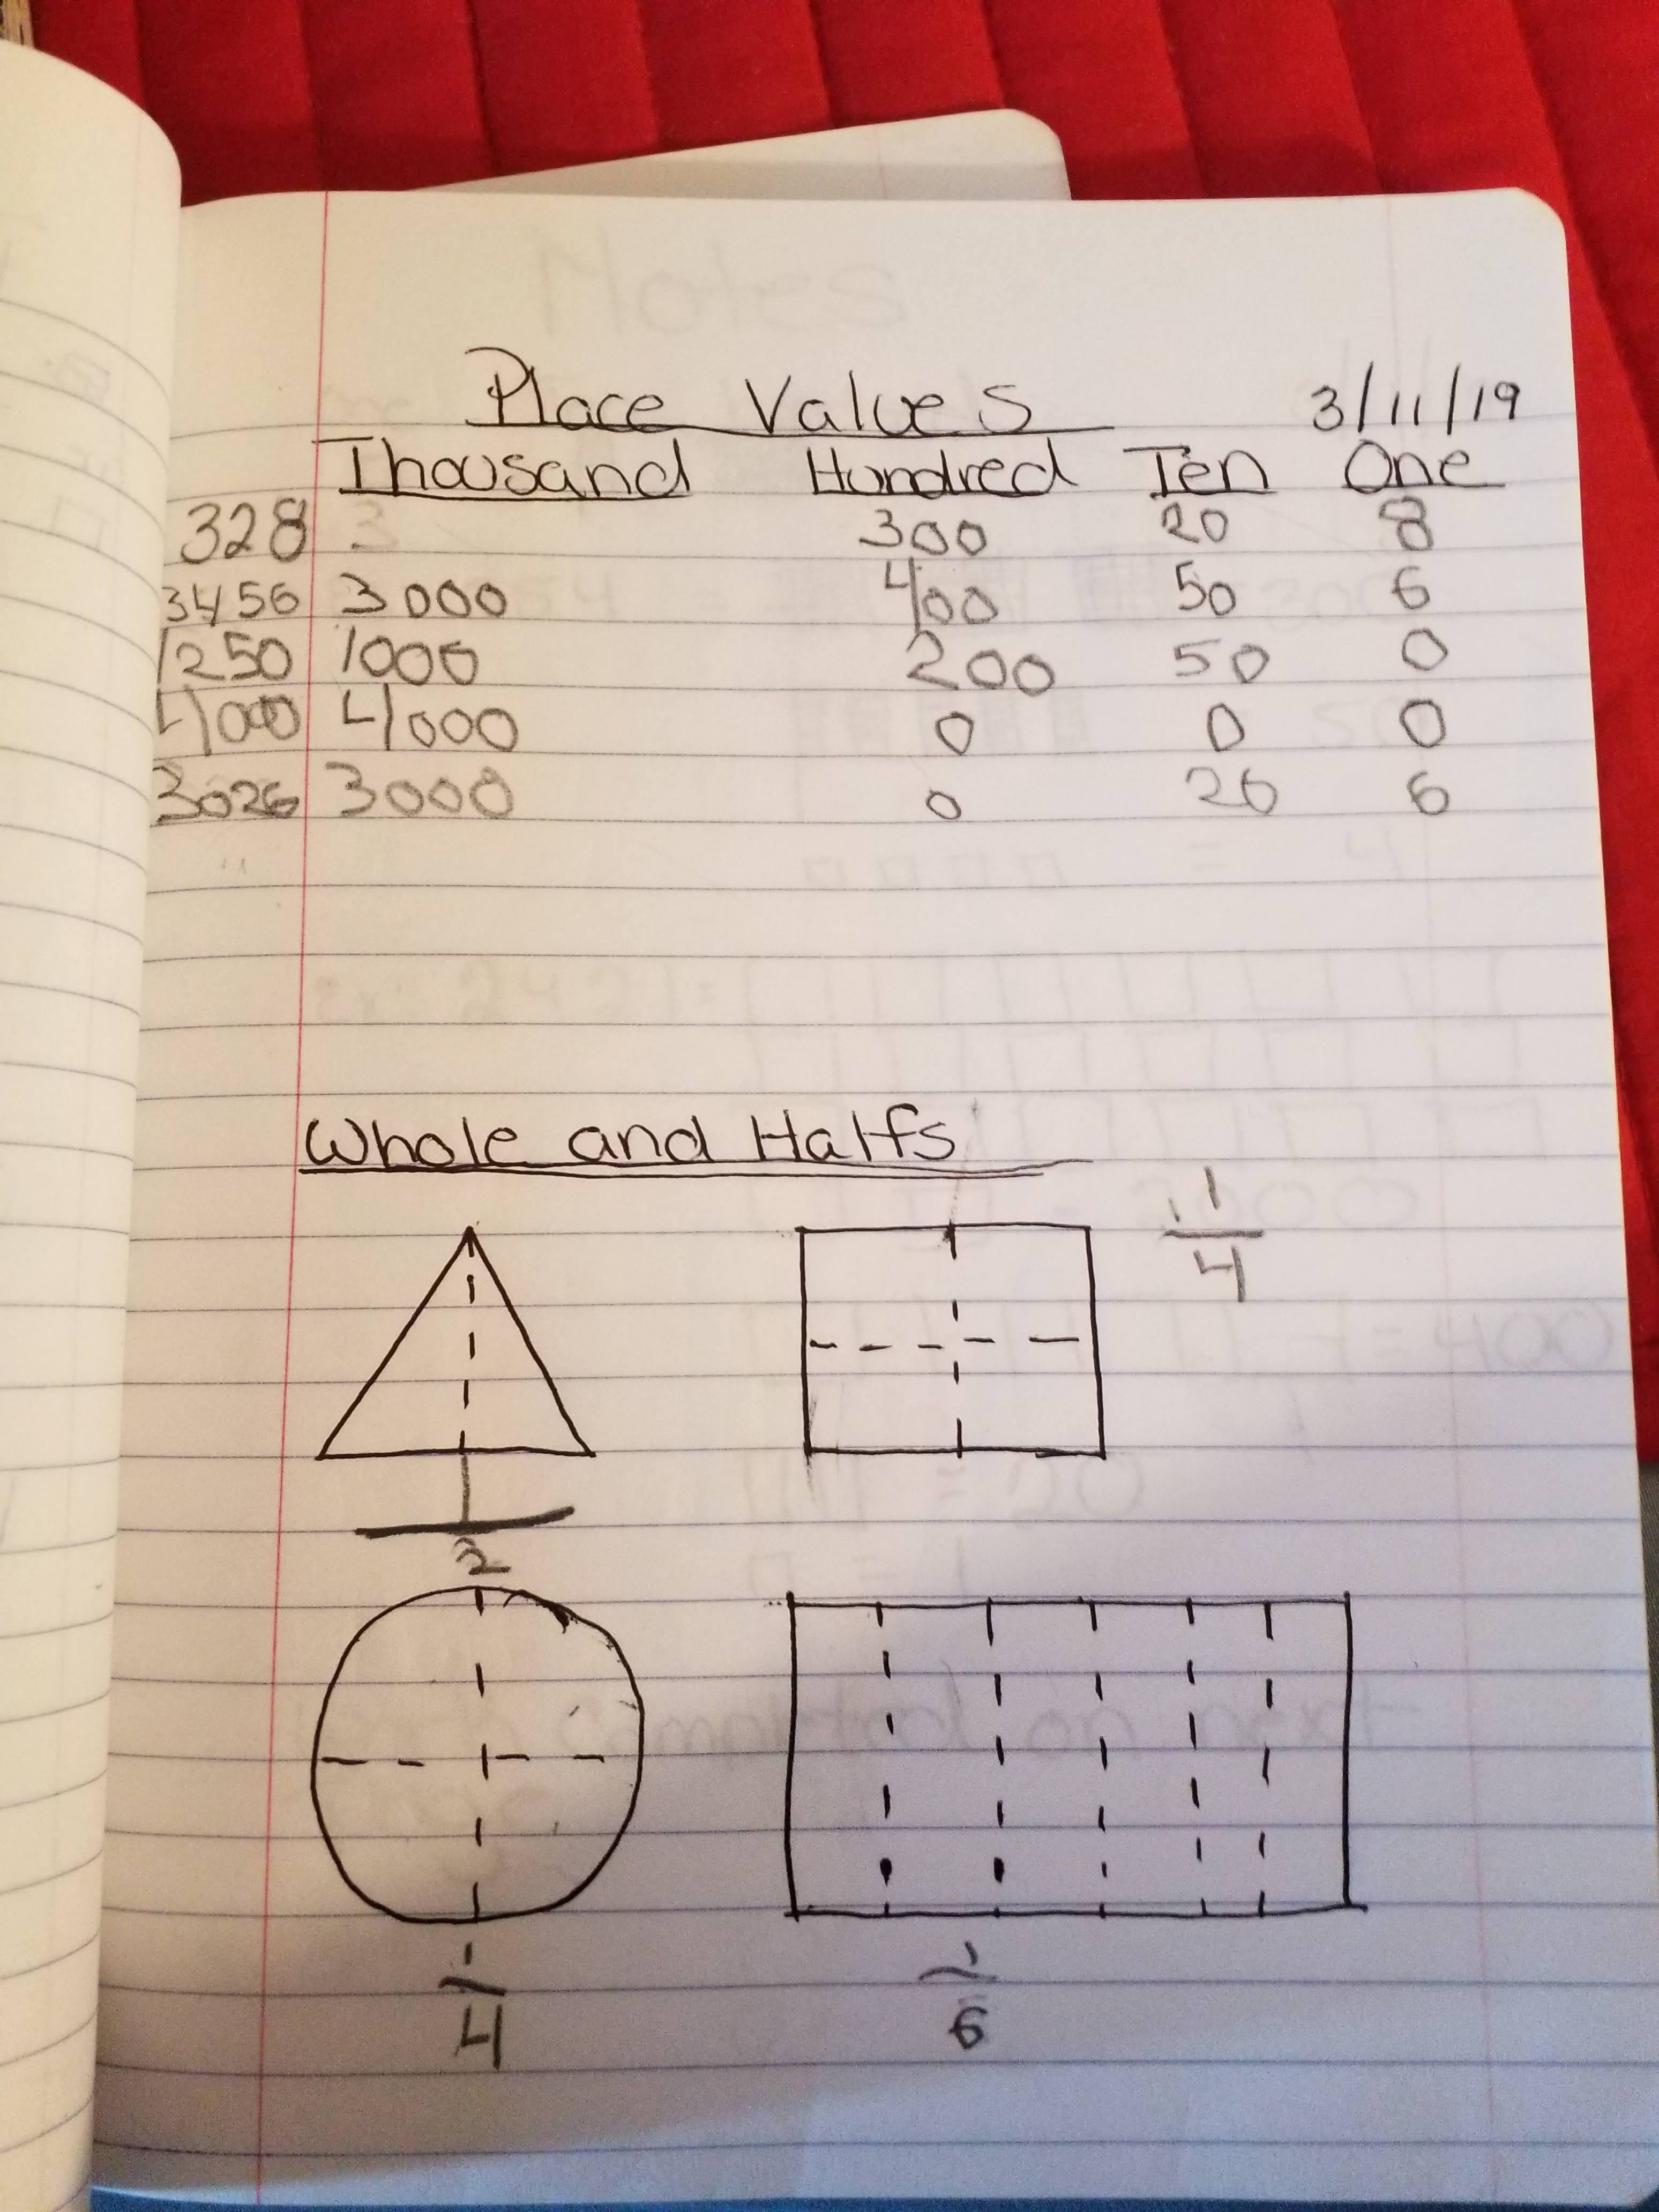 Place Values 3/11/19
Thousand Hundred Ten One
328 300 20 8
3456 3000 400 50 6
1250 1000 200 50 0
4000 4000 0 0 0
3026 3000 0 20 6
Whole and Halfs
1/4
1/2
1/4 1/6